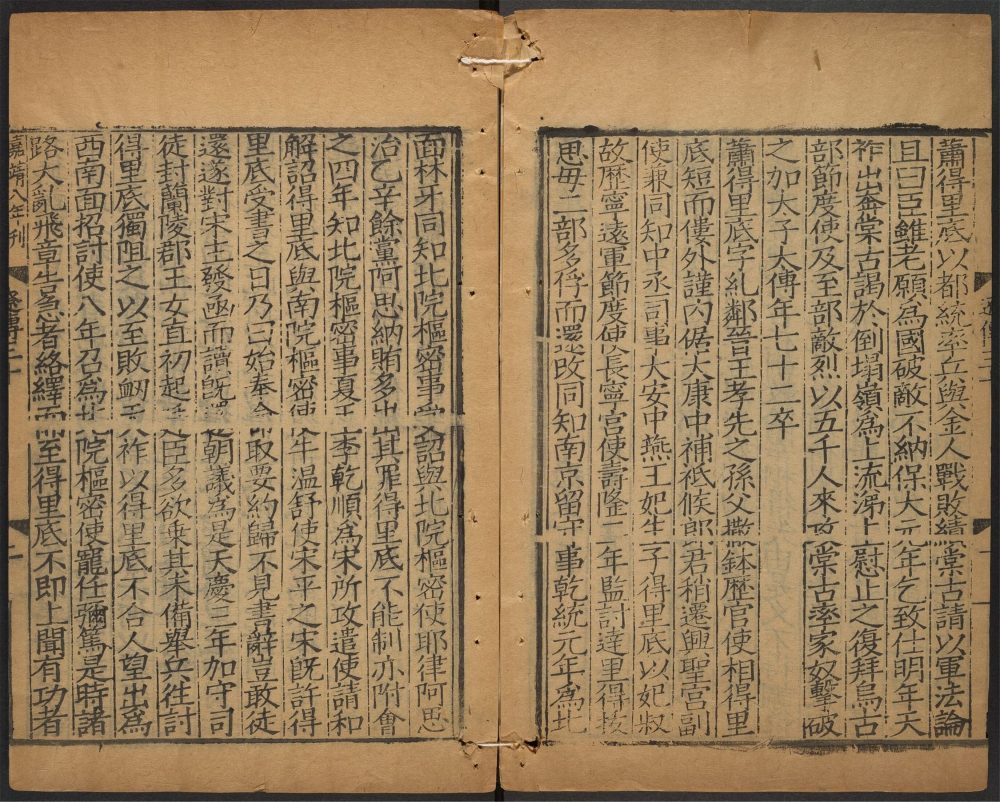 蕭得里底以都統率兵與金人戰敗績棠古請以軍法論
且曰臣雖老願爲國破敵不納保大元年乞致仕明年天
祚出奔棠古謁於倒塌嶺爲上流涕上慰止之復拜烏古
部節度使及至部敵烈以五千人來攻棠古率家奴擊破
之加太子太傅年七十二卒
蕭得里底字糺鄰晉王孝先之孫父撒鉢歷官使相得里
底短而僂外謹内倨大康中補祗候郎君稍遷興聖宮副
使兼同知中丞司事大安中燕王妃生子得里底以妃叔
故歷寧遠軍節度使長寧宮使壽隆二年監討達里得拔
思母二部多俘而還改同知南京留守事乾統元年爲北
面林牙同知北院樞密事受詔與北院樞密使耶律阿思
治乙辛餘黨阿思納賄多出其罪得里底不能制亦附會
之四年知北院樞密事夏王李乾順爲宋所攻遣使請和
解詔得里底與南院樞密使牛温舒使宋平之宋旣許得
里底受書之日乃曰始奉命取要約歸不見書辭豈敢徒
還遂對宋主發函而讀旣還朝議爲是天慶三年加守司
徒封蘭陵郡王女直初起廷臣多欲乘其未備舉兵往討
得里底獨阻之以至敗衂天祚以得里底不合人望出爲
西南面招討使八年召爲北院樞密使寵任彌篤是時諸
路大亂飛章告急者絡繹而至得里底不即上聞有功者
嘉靖八年刊